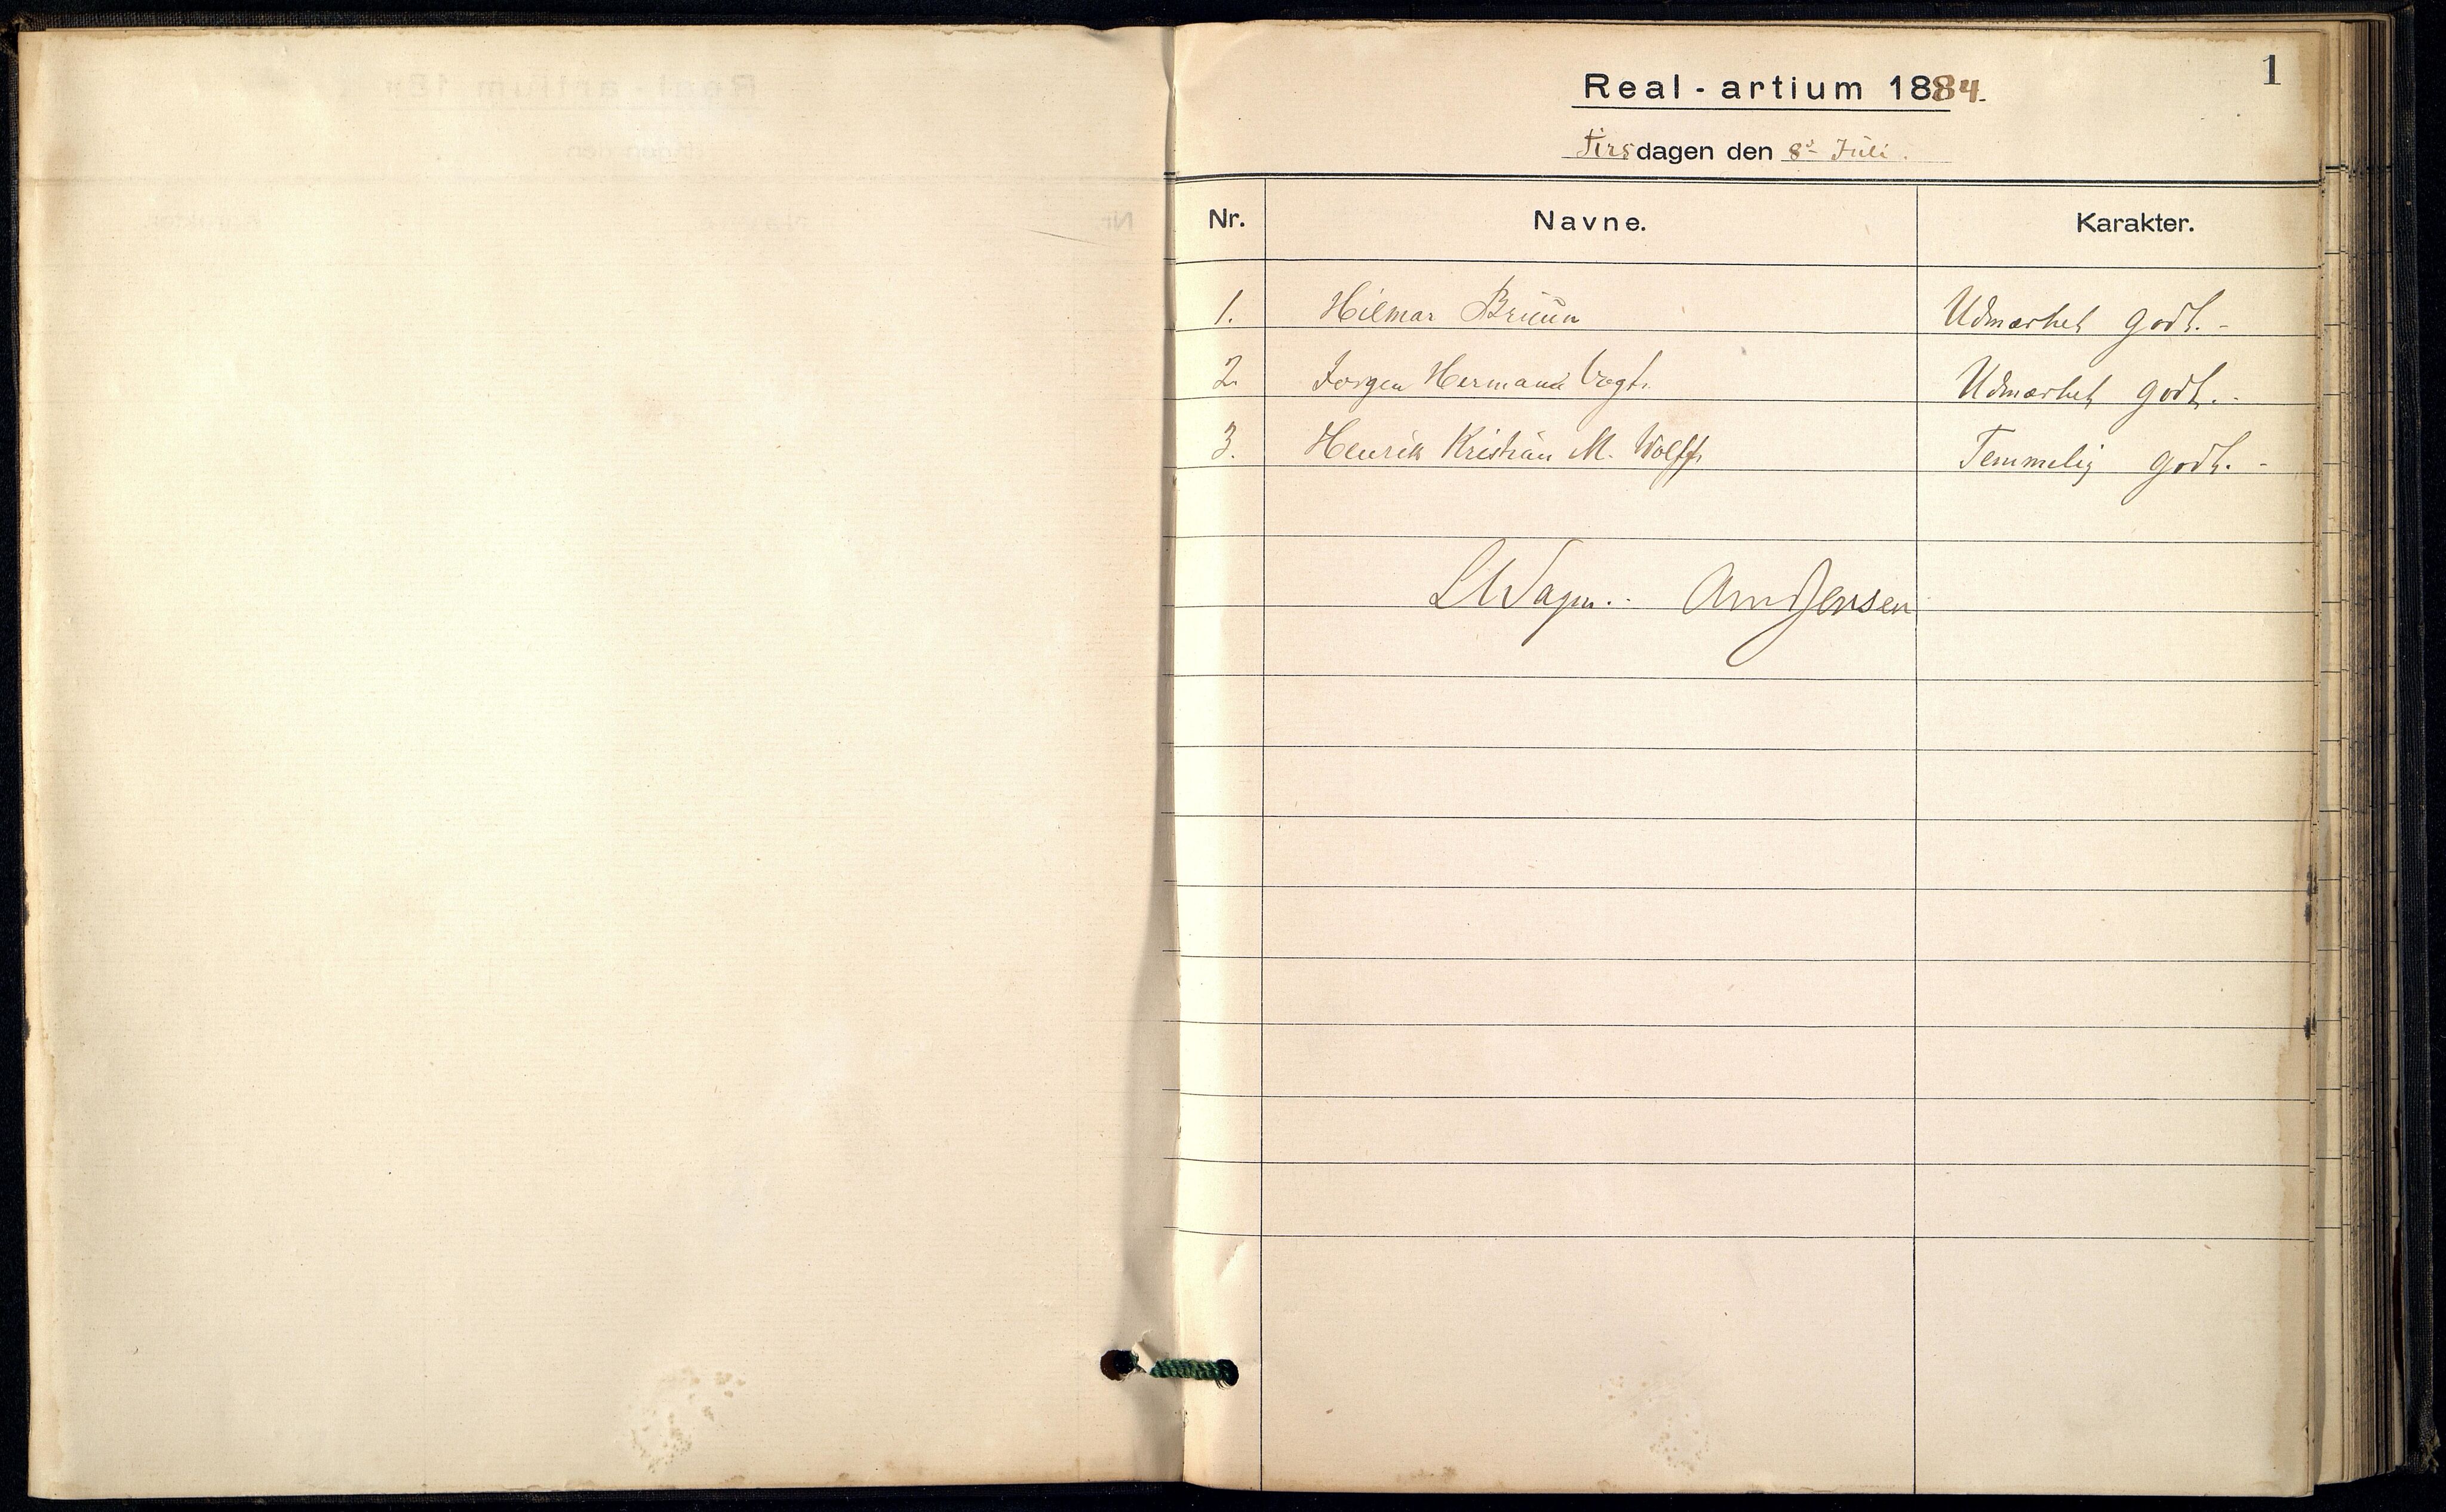 1
Real-artium 1884.
Tirsdagen den 8de Juli.
Nr. Navne. Karakter.
1. Hilmar Bruun Udmærket godt. -
2. Jørgen Hermann Vogt. Udmærket godt. -
3. Henrik Kristian M. Wolff. Temmelig godt. -
Jensen